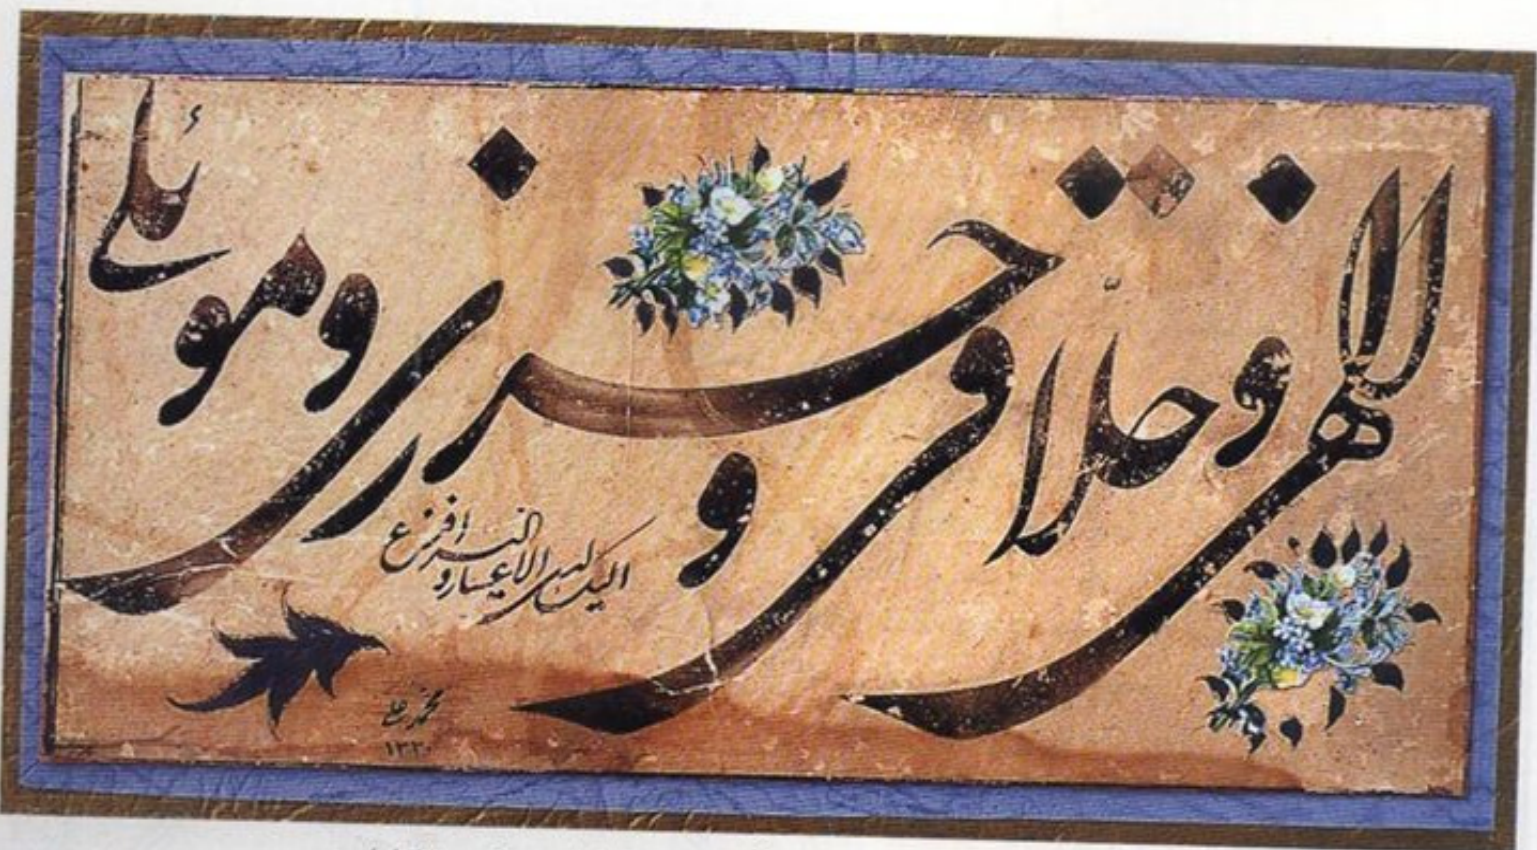 الهی و خلّاقی و حرزی و موئلی
الیک لدی الاعسار و الیسر افزع
محمد علی
۱۳۳۰